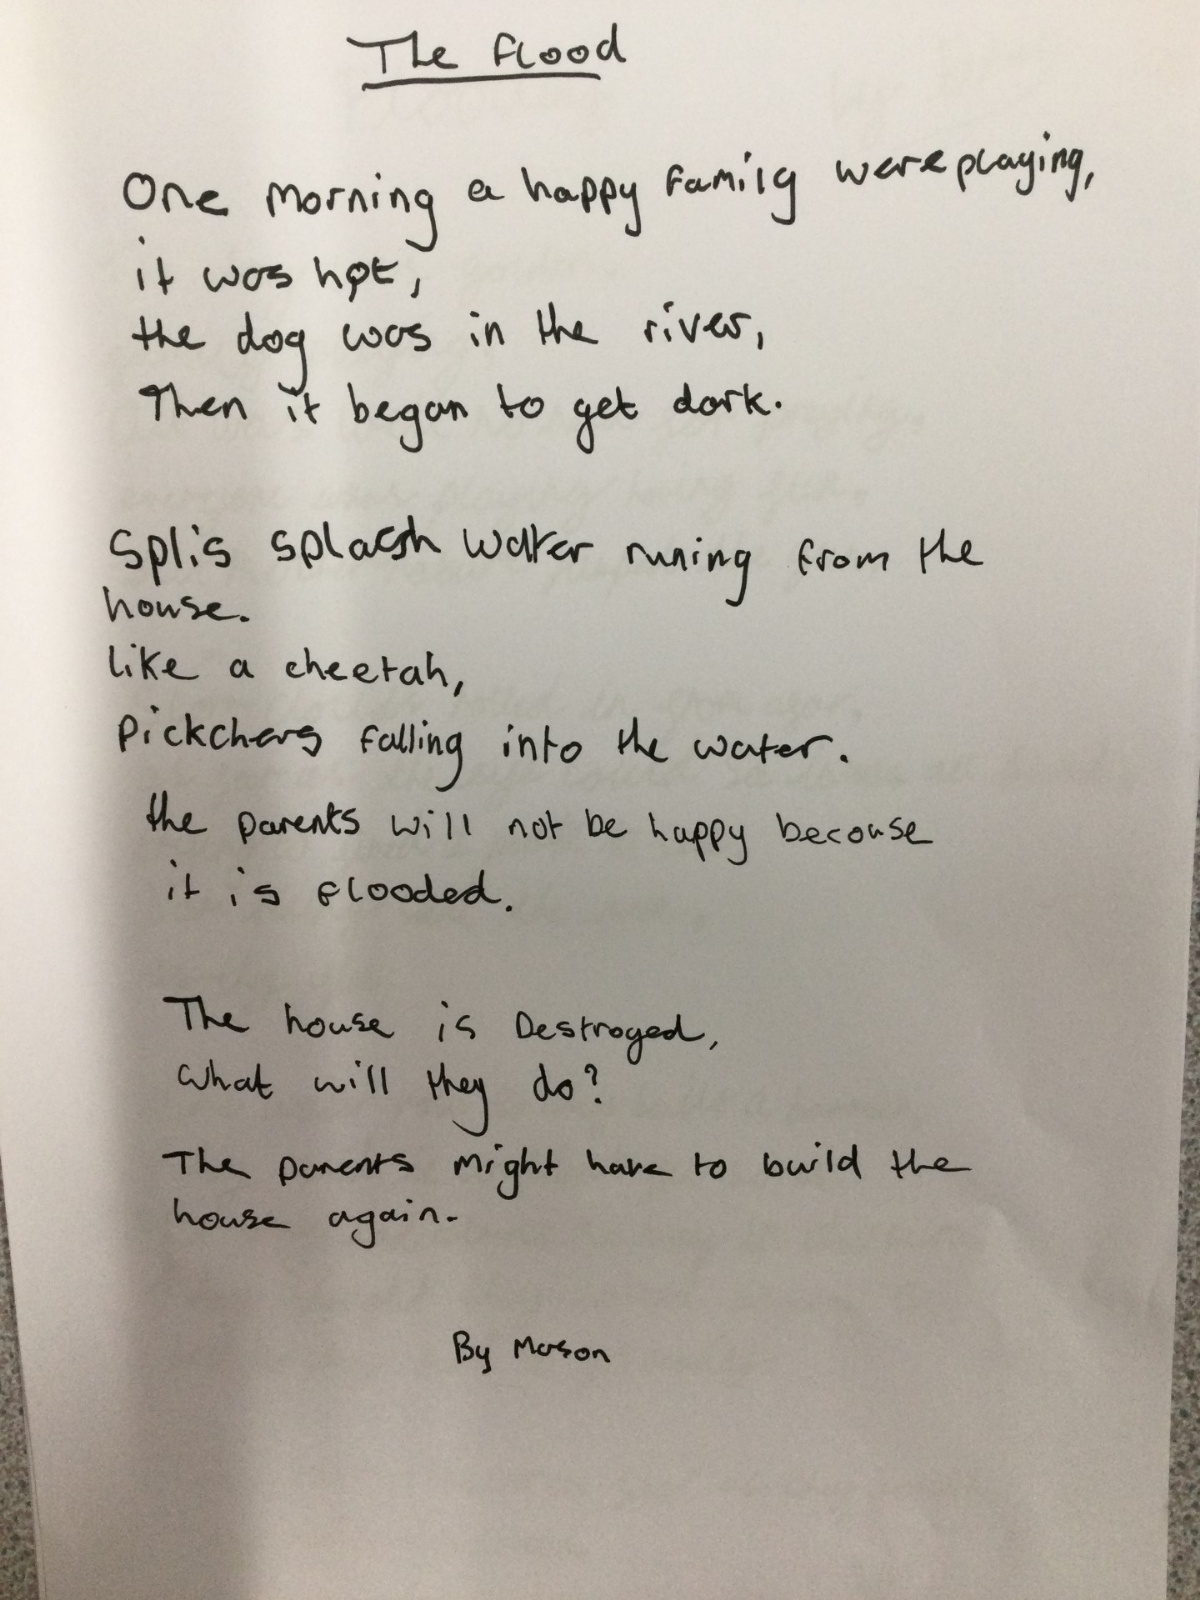 The flood
One morning a happy family were playing,
it was hot,
the dog was in the river,
Then it began to get dark.
Splis splash water runing from the
house.
like a cheetah,
Pickchers falling into the water.
the parents will not be happy because
it is flooded.
The house is Destroyed,
What will they do?
The parents might have to build the
house again.
By Mason